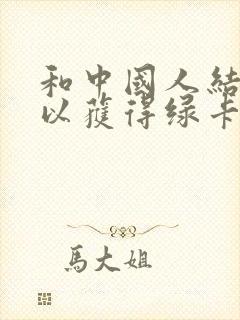 和中國人結
以獲得綠卡
馬大姐